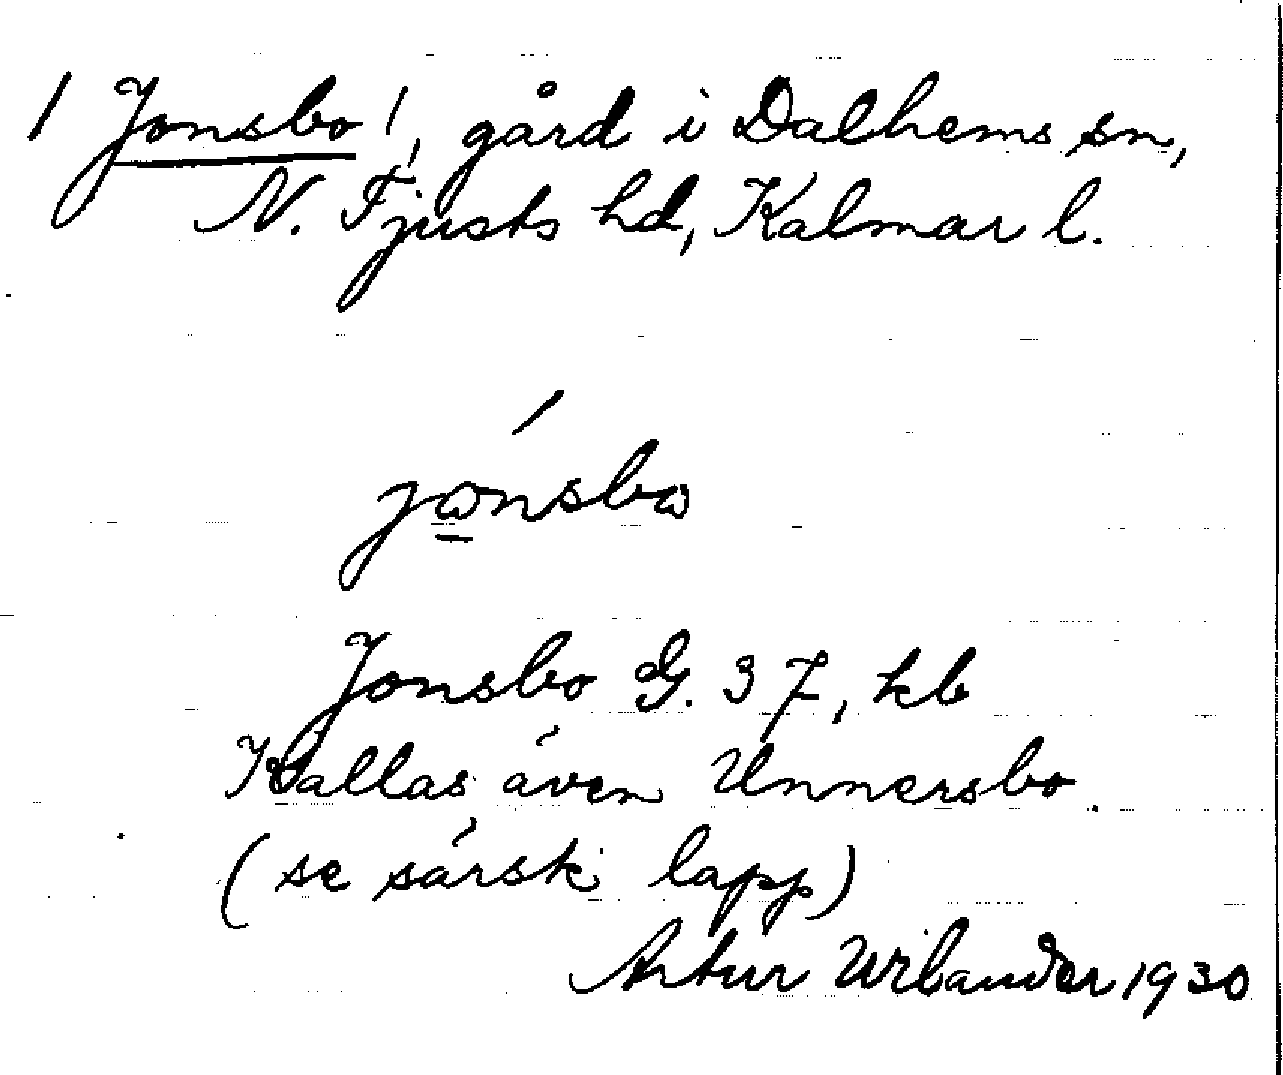 / Jonsbo /, gård i Dalhems sn,
N. Tjusts hd, Kalmar l.
jωnsbω
Jonsbo G. 37, kb
Kallas även Unnersbo.
(se särsk. lapp)
Artur Wilander 1930